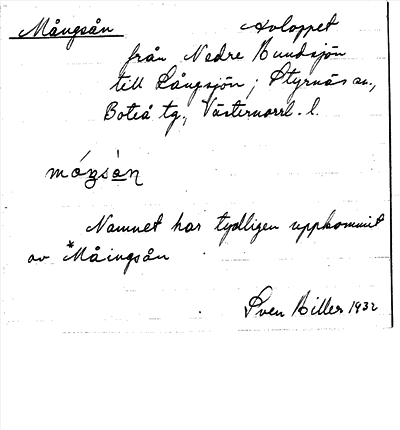 Mångsån Avloppet
från Nedre Bundsjön
till Långsjön; Styrnäs sn.,
Boteå tg., Västernorrl. l.
móŋsàn
Namnet har tydligen uppkommit
av *Måingsån
Sven Biller 1932